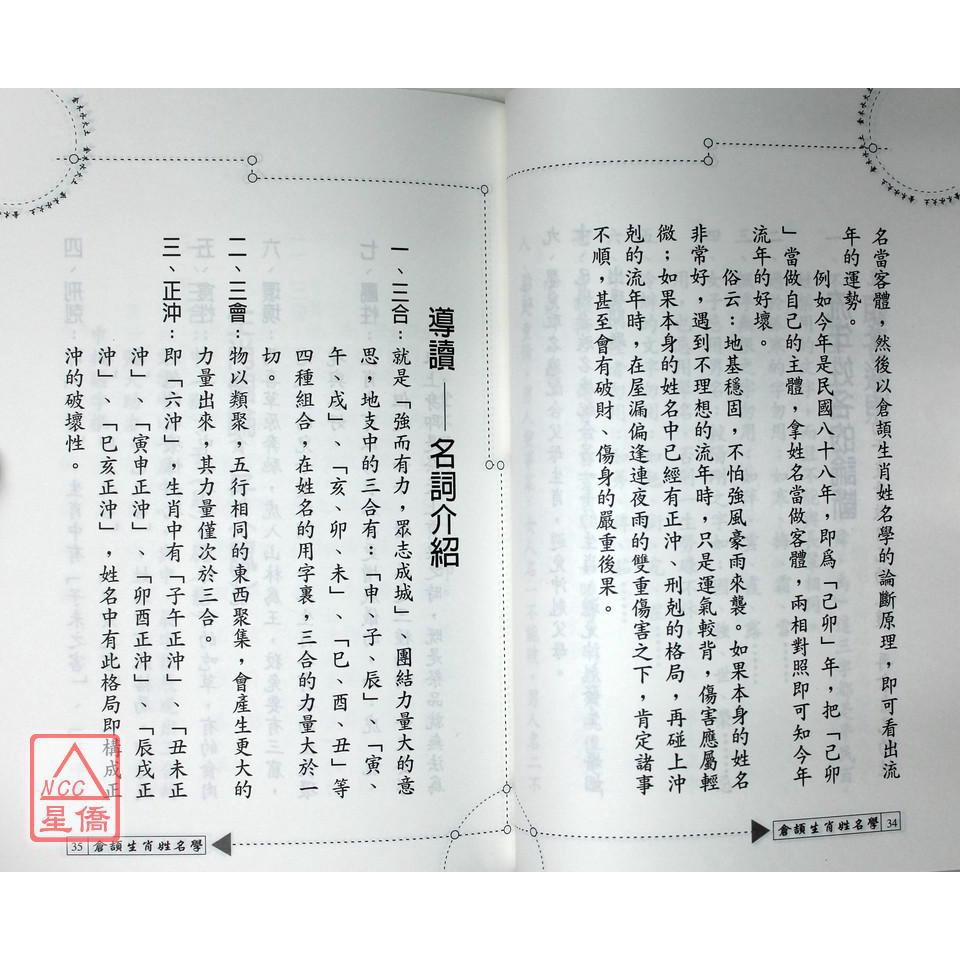 名當客體，然後以倉頡生肖姓名學的論斷原理，即可看出流
年的運勢。
例如今年是民國八十八年，即為「己卯」年，把「己卯
」當做自己的主體，拿姓名當做客體，兩相對照即可知今年
流年的好壞。
俗云：地基穩固，不怕強風豪雨來襲。如果本身的姓名
非常好，遇到不理想的流年時，只是運氣較背，傷害應屬輕
微；如果本身的姓名中已經有正沖、刑剋的格局，再碰上沖
剋的流年時，在屋漏偏逢連夜雨的雙重傷害之下，肯定諸事
不順，甚至會有破財、傷身的嚴重後果。
倉頡生肖姓名學 34
導讀——名詞介紹
一、三合：就是「強而有力，眾志成城」、團結力量大的意
思，地支中的三合有：「申、子、辰」、「寅、
午、戌」、「亥、卯、未」、「巳、酉、丑」等
四種組合，在姓名的用字裏，三合的力量大於一
切。
二、三會：物以類聚，五行相同的東西聚集，會產生更大的
力量出來，其力量僅次於三合。
三、正沖：即「六沖」，生肖中有「子午正沖」、「丑未正
沖」、「寅申正沖」、「卯酉正沖」、「辰戌正
沖」、「巳亥正沖」，姓名中有此格局即構成正
沖的破壞性。
35 倉頡生肖姓名學
NCC
星僑